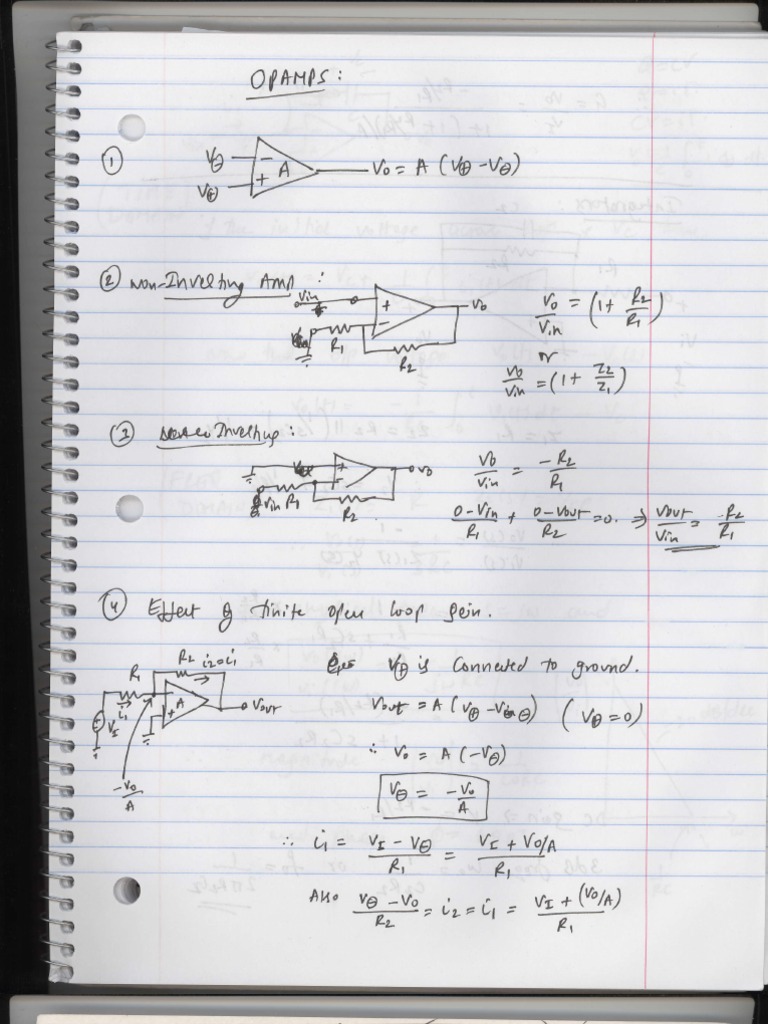 OPAMPS:
① V⊖ - A V₀ = A (V⊕ - V⊖)
V⊕ +
② Non-Inverting Amp:
Vin + V₀ V₀/Vin = (1 + R2/R1)
- R1 R2
or
V₀/Vin = (1 + Z2/Z1)
③ Inverting:
+ - V₀ V₀/Vin = -R2/R1
Vin R1 R2
0-Vin/R1 + 0-Vout/R2 = 0. ⇒ Vout/Vin = -R2/R1
④ Effect of finite open loop gain.
R1 R2 i2=i1 V⊕ is connected to ground.
i1 VI - + A Vout
Vout = A (V⊕ - V⊖) (V⊕ = 0)
-V₀/A
∴ V₀ = A (-V⊖)
V⊖ = -V₀/A
∴ i1 = VI - V⊖/R1 = VI + V₀/A/R1
Also V⊖ - V₀/R2 = i2 = i1 = VI + (V₀/A)/R1